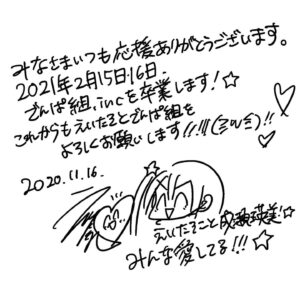 みなさまいつも応援ありがとうございます。
2021年2月15日16日.
でんぱ組.incを卒業します!☆
これからもえいたそとでんぱ組を
よろしくお願いします!!!!(ミ^ω^ミ)!!
2020.11.16.
えいたそこと成瀬瑛美!☆
みんな愛してる!!!☆